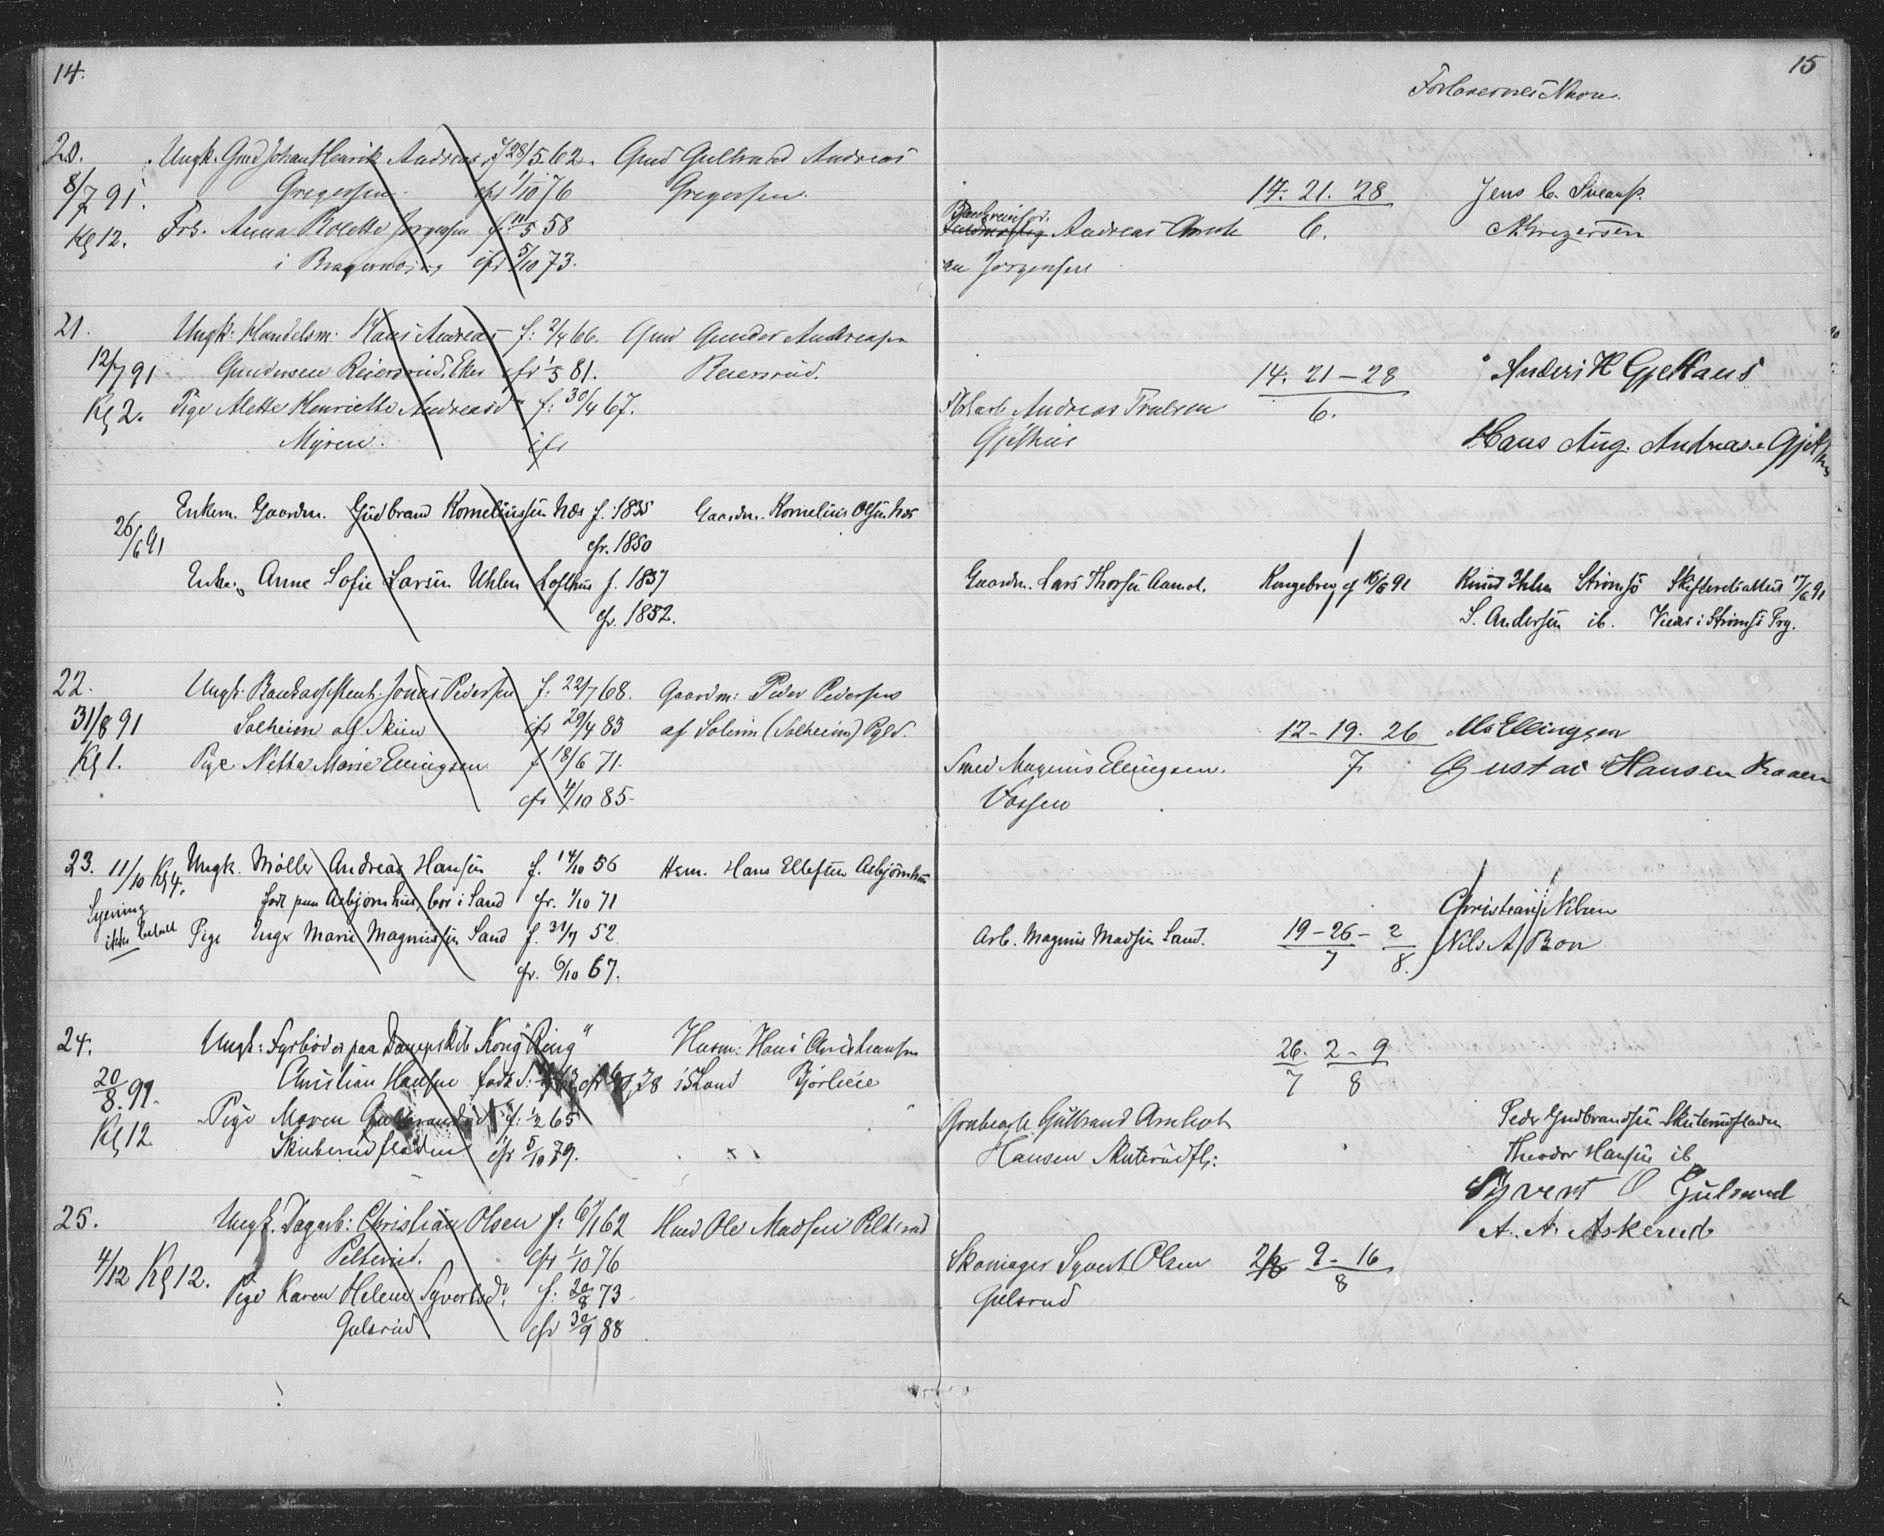 14.
15
Forlovernes Navn.
20. Ungk. Gmd Johan Henrik Andreas f. 28/5 62. Gmd Gulbrand Andreas
8/7 91. Gregersen cfr 1/10 76 Gregersen. 14. 21. 28 Jens C.
Kl 12. Frk. Anna Bolette Jørgensen f. 11/5 58 Andreas 6. Gregersen
i Bragernæs cfr 5/10 73. Jørgensen
21. Ungk. Handelsm. Hans Andreas f. 2/4 66. Gmd Gunder Andreasen
12/7 91 Gundersen Reiersrud, Eker cfr 1/5 81. Reiersrud. 14. 21 – 28 Anders H Gjethuus
Kl 2. Pige Mette Henriette Andreasd. f. 30/4 67. Andreas Truesen 6.
Myren. cfr Gjethus Hans Aug. Andreasen Gjethus
26/6 91 Enkem. Gaardm. Gudbrand Korneliussen Næs f. 1835 Gaardm. Kornelius Olsen Næs
cfr. 1850
Enke. Anne Sofie Larsen Uhlen Lofthus f. 1837 Gaardm. Lars Thorsen Aamot. Kongebrev af 15/6 91 Knud Uhlen Strømsø Skifteretsattest 17/6 91
cfr. 1852. S. Andersen ib. Viens i Strømsø Prg.
22. Ungk. Jonas Pedersen f. 22/7 68. Gaardm: Peder Pedersens
31/8 91 Solheim af Skien cfr 29/4 83 af Soleim (Solheim) 12 – 19. 26 Ellingsen
Kl 1. Pige Netta Marie Ellingsen f 18/6 71. Smed Magnus Ellingsen. 7 Gustav Hansen
cfr 4/10 85. Vossen
23. 11/10 Kl 4. Ungk. Møller Andreas Hansen f. 14/10 56 Hsm. Hans Ellefsen Asbjørnhus
født paa Asbjørnhus, bor i Sand cfr. 1/10 71 Christian Nilsen
ikke betalt Pige Inger Marie Magnussen Sand f. 31/7 52 Arb. Magnus Madsen Sand. 19 – 26 – 2 Nils A. Bon
7 8.
cfr. 6/10 67.
24. Ungk: Fyrbøder paa Dampskib "Kong Ring" Husm: Hans Christiansen 26. 2 – 9
20/8. 91. Christian Hansen født i Land Bjørlieie 7 8
Kl 12 Pige Maren Gulbrandsd. f. 1/2 65 Gulbrand Peder Gudbrandsen Skuterudfladen
Skuterudfladen cfr 5/10 79. Hansen Skuterudfl: Theodor Hansen ib
Syvert O Gulsrud
25. Ungk. Dagarb: Christian Olsen f: 6/1 62 Hmd Ole Madsen Pilterud A. A. Askerud
4/12 Kl 12. Pilterud. cfr 1/10 76 Skomager Syvert Olsen 9 – 16
Pige Karen Helene Syvertsd. f: 20/8 73 Gulsrud 8
Gulsrud cfr 30/9 88